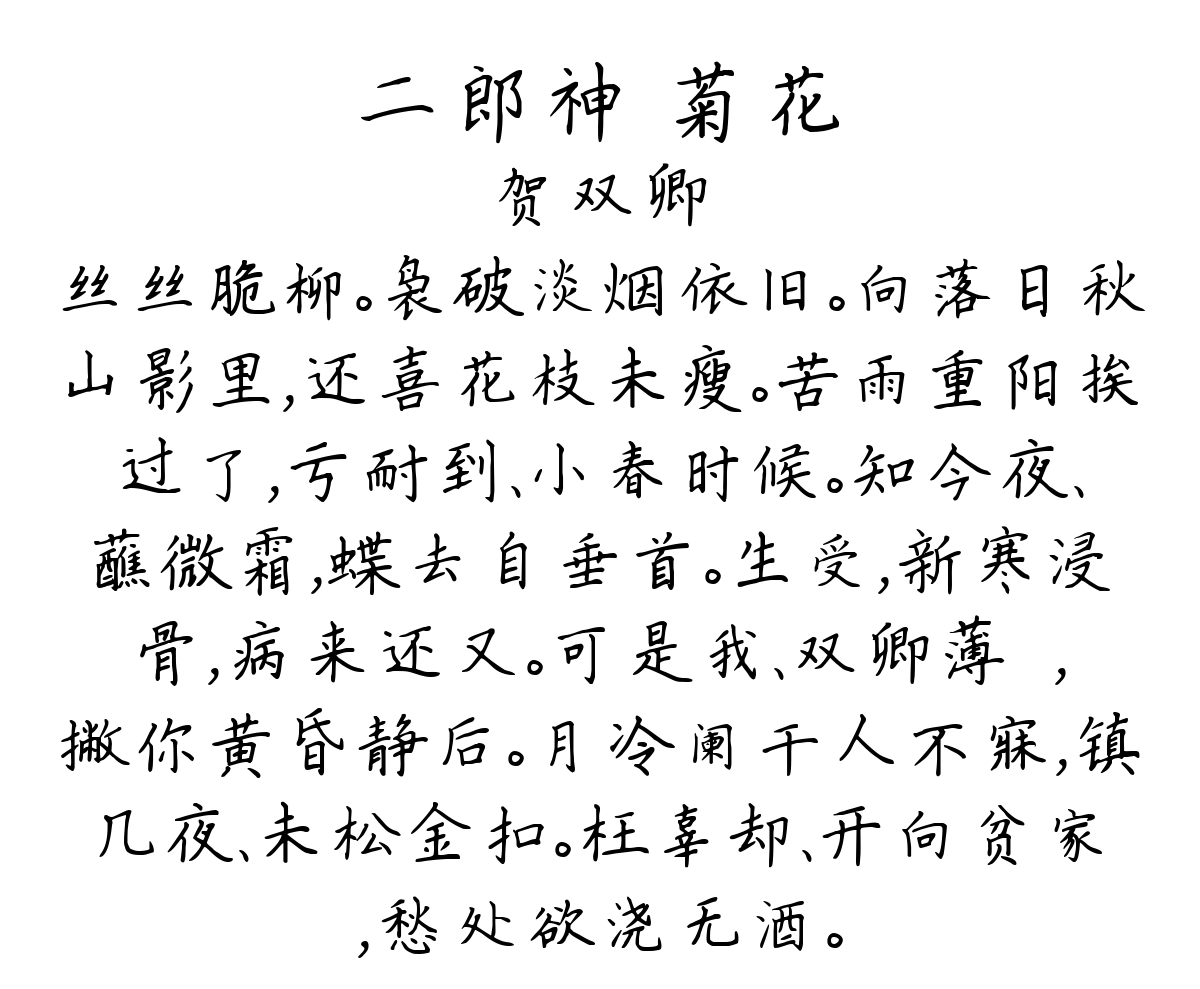 二郎神 菊花
贺双卿
丝丝脆柳。袅破淡烟依旧。向落日秋
山影里,还喜花枝未瘦。苦雨重阳挨
过了,亏耐到、小春时候。知今夜、
蘸微霜,蝶去自垂首。生受,新寒浸
骨,病来还又。可是我、双卿薄 ,
撇你黄昏静后。月冷阑干人不寐,镇
几夜、未松金扣。枉辜却、开向贫家
,愁处欲浇无酒。